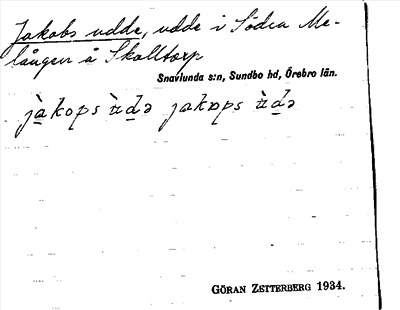 Jakobs udde, udde i Södra Me-
lången å Skalltorp
Snavlunda s:n, Sundbo hd, Örebro län.
jàkops ùdə jakops ùdə
GÖRAN ZETTERBERG 1934.